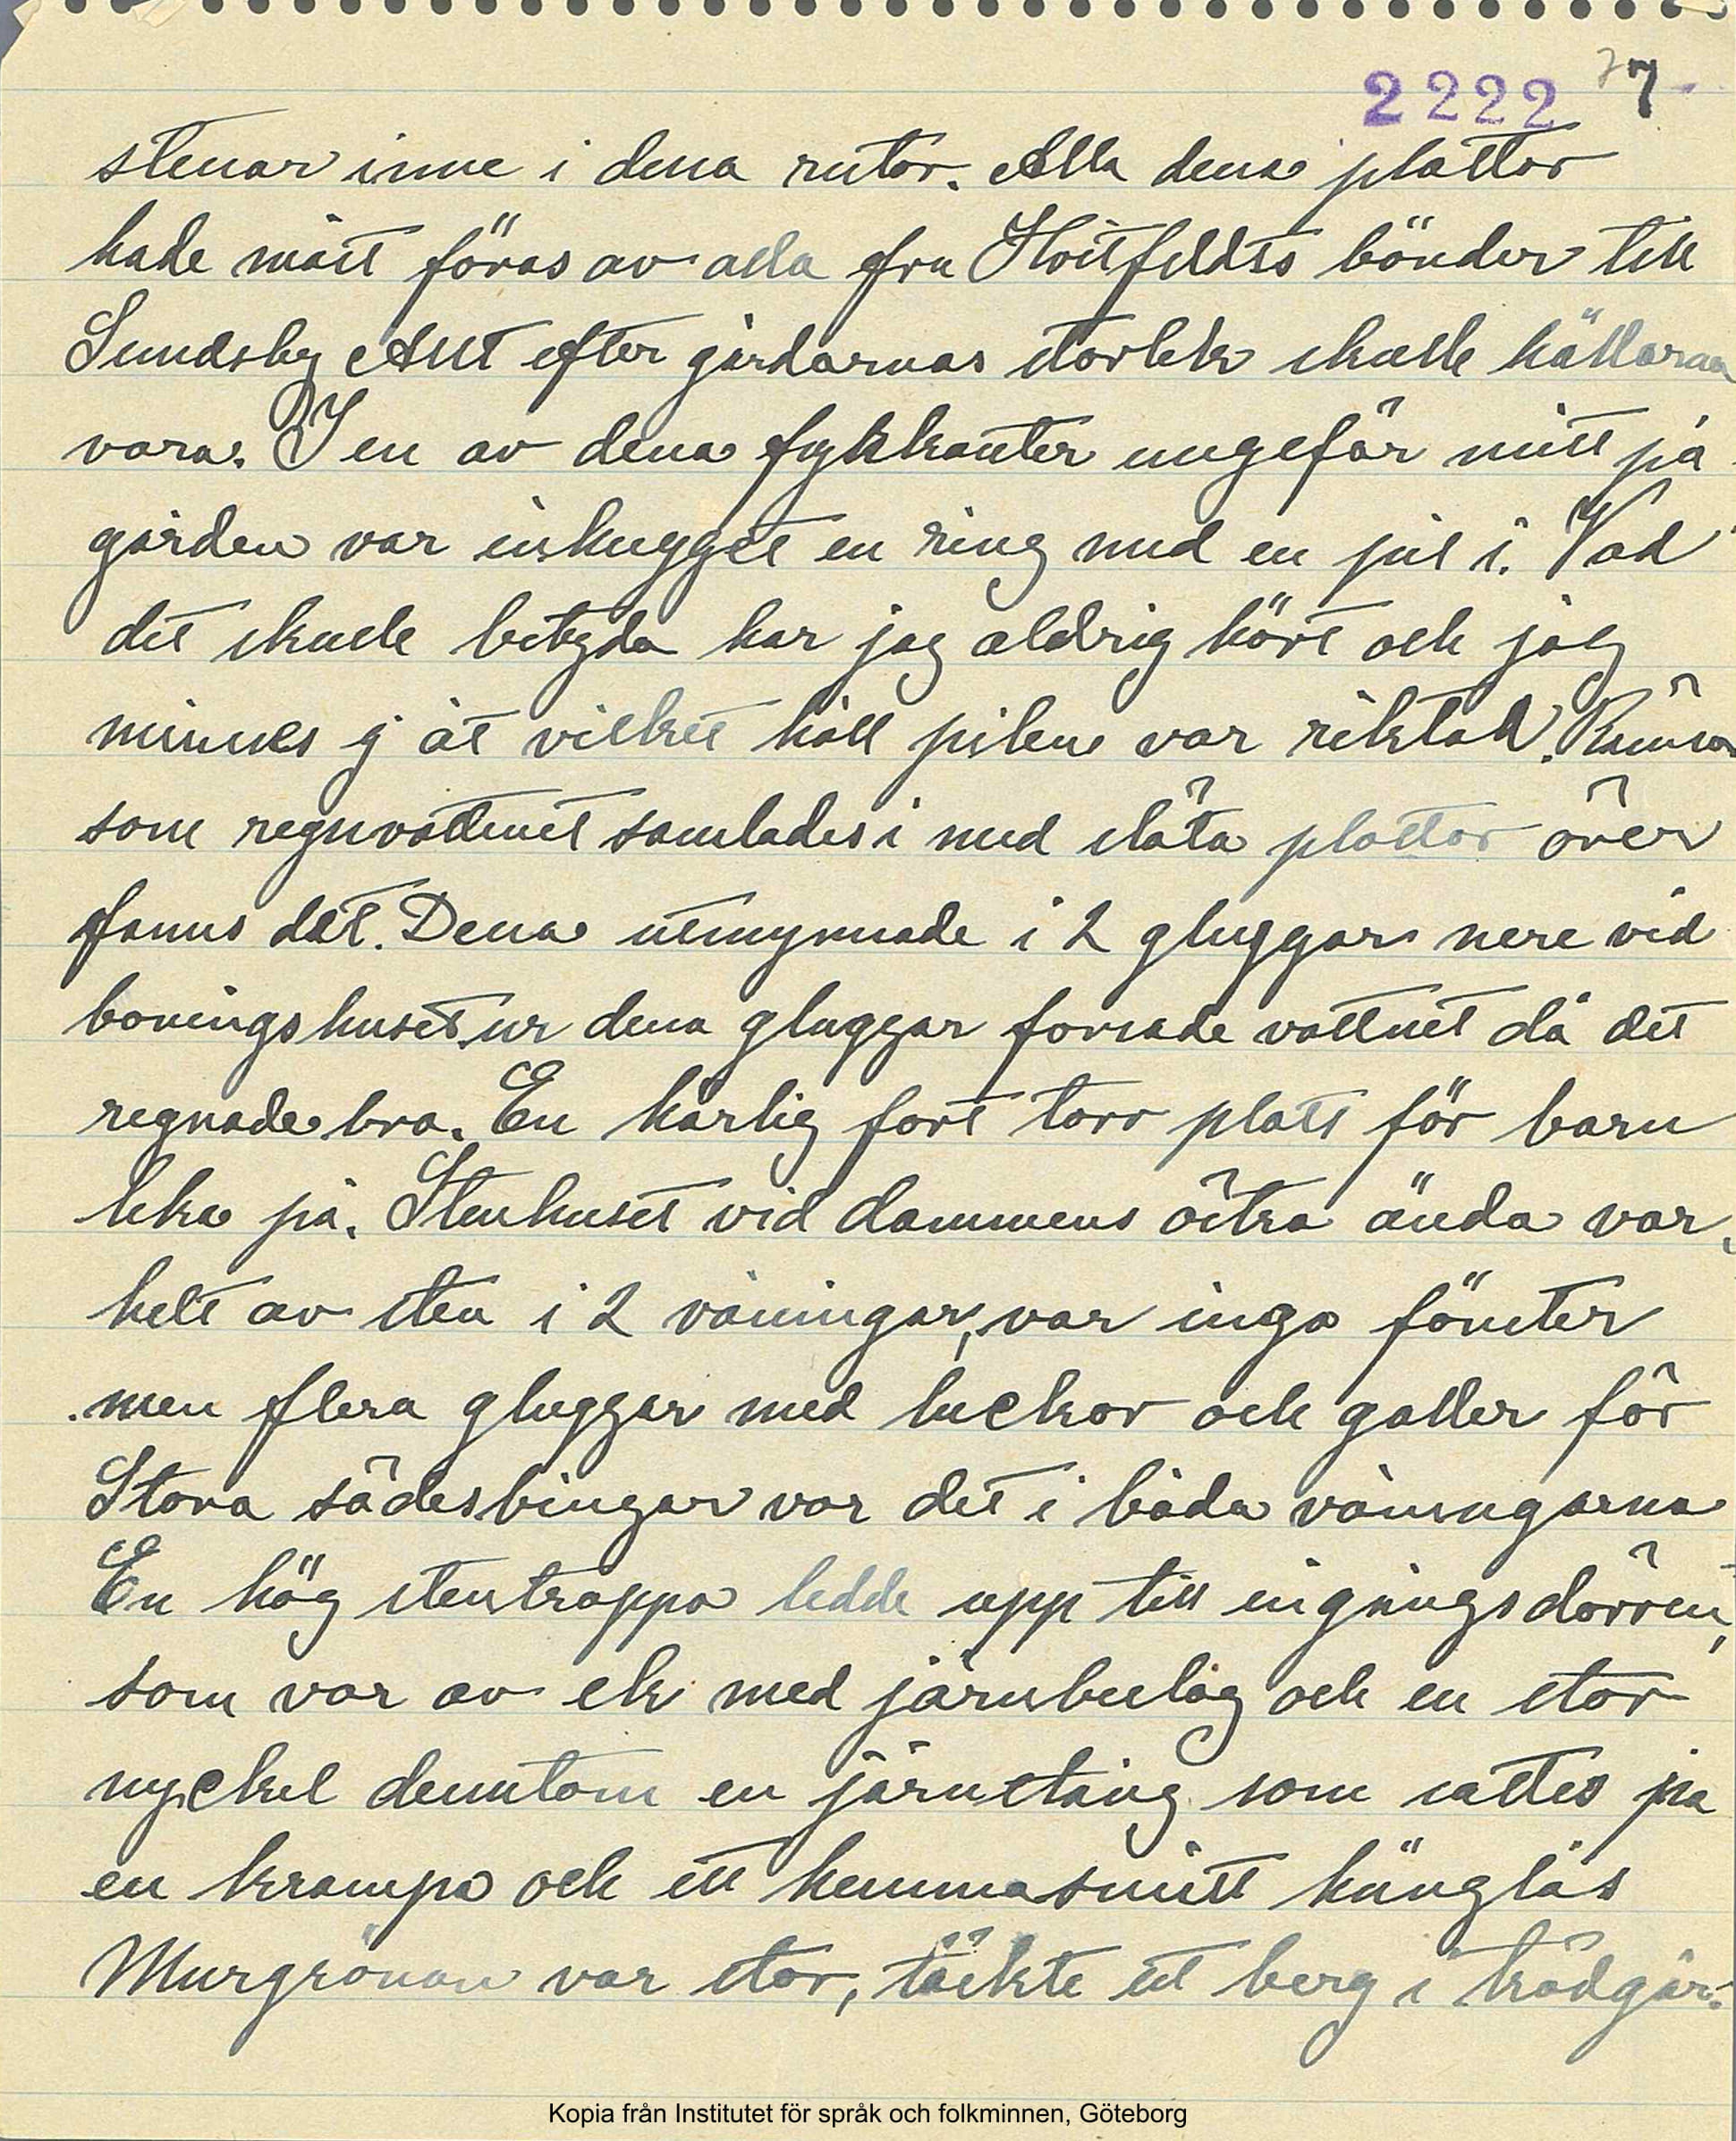 2222 77
stenar inne i dessa rutor. Alla dessa plattor
hade måst föras av alla fru Hvitfeldts bönder till
Sundsby Allt efter gårdarnas storlek skulle hällarna
vara. I en av dessa fyrkanter ungefär mitt på
gården var inhugget en ring med en pil i. Vad
det skulle betyda har jag aldrig hört och jag
minnes ej åt vilket håll pilen var riktad. Rännor
som regnvattnet samlades i med släta plattor över
fanns det. Dessa utmynnade i 2 gluggar nere vid
boningshuset, ur dessa gluggar forsade vattnet då det
regnade bra. En härlig fort torr plats för barn
leka på. Stenhuset vid dammens östra ända var,
helt av sten i 2 våningar, var inga fönster
men flera gluggar med luckor och galler för
Stora sädesbingar var det i båda våningarna
En hög stentrappa ledde upp till ingångsdörren,
som var av ek med järnbeslag och en stor
nyckel dessutom en järnstång som sattes på
en krampa och ett hemmasmitt hänglås
Murgrönan var stor, täckte ett berg i trädgår-
Kopia från Institutet för språk och folkminnen, Göteborg